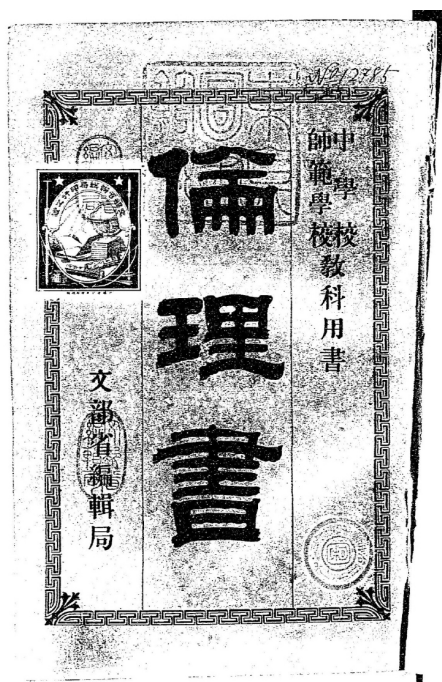 No 12785
中學校
師範學校教科用書
倫理書
文部省編輯局